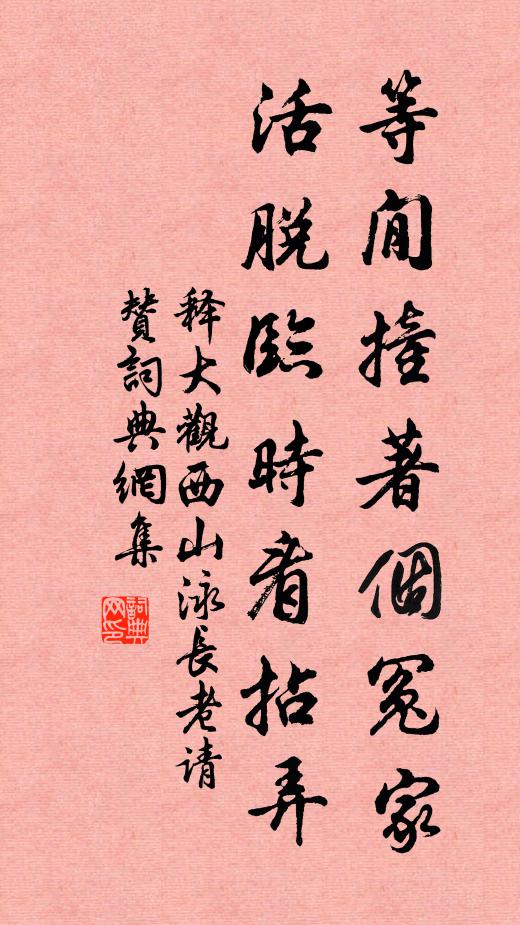 等閒撞著個冤家
活脫臨時看拈弄
释大觀西山泳長老请
贊詞典網集
詞典网印